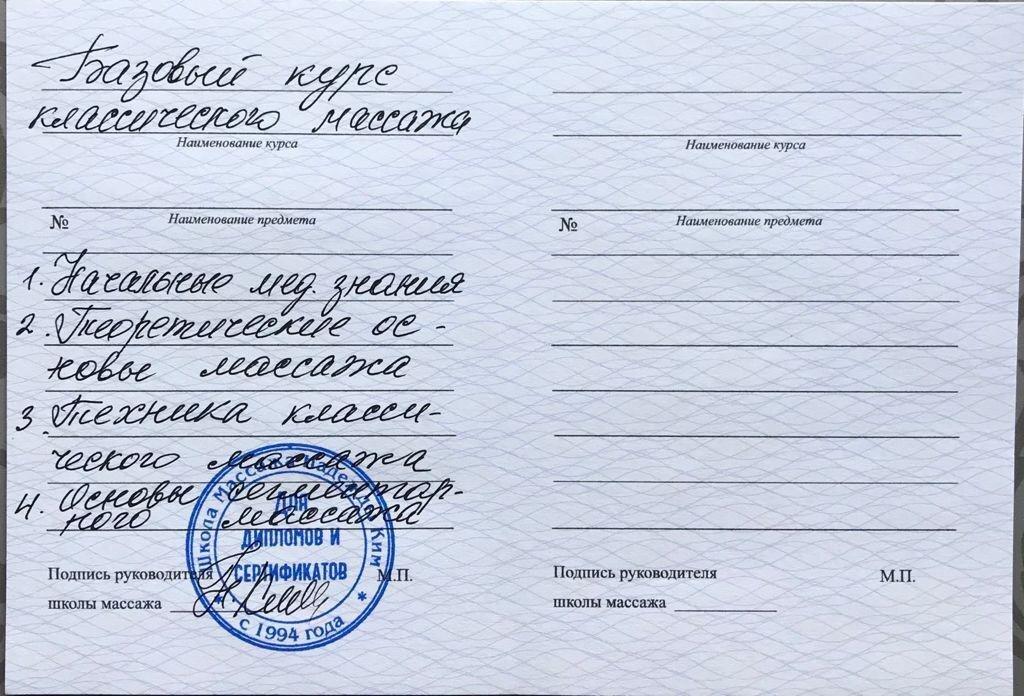 Базовый курс
классического массажа
Наименование курса
№ Наименование предмета
1. Начальные мед. знания
2. Теоретические ос-
новы массажа
3. Техника класси-
ческого массажа
4. Основы сегментар-
ного массажа
Школа массажа Надежды Ким
Для
дипломов и
сертификатов
* с 1994 года *
Подпись руководителя М.П.
школы массажа
Наименование курса
№ Наименование предмета
Подпись руководителя М.П.
школы массажа